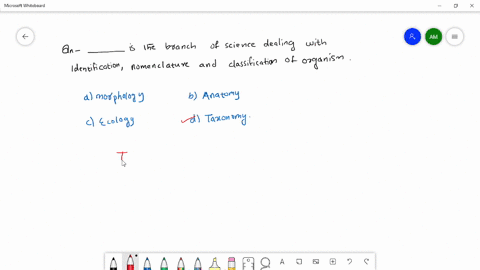 Microsoft Whiteboard
Qn- ______ is the branch of science dealing with
identification, nomenclature and classification of organism.
a) morphology b) Anatomy
c) Ecology d) Taxonomy.
T
AM